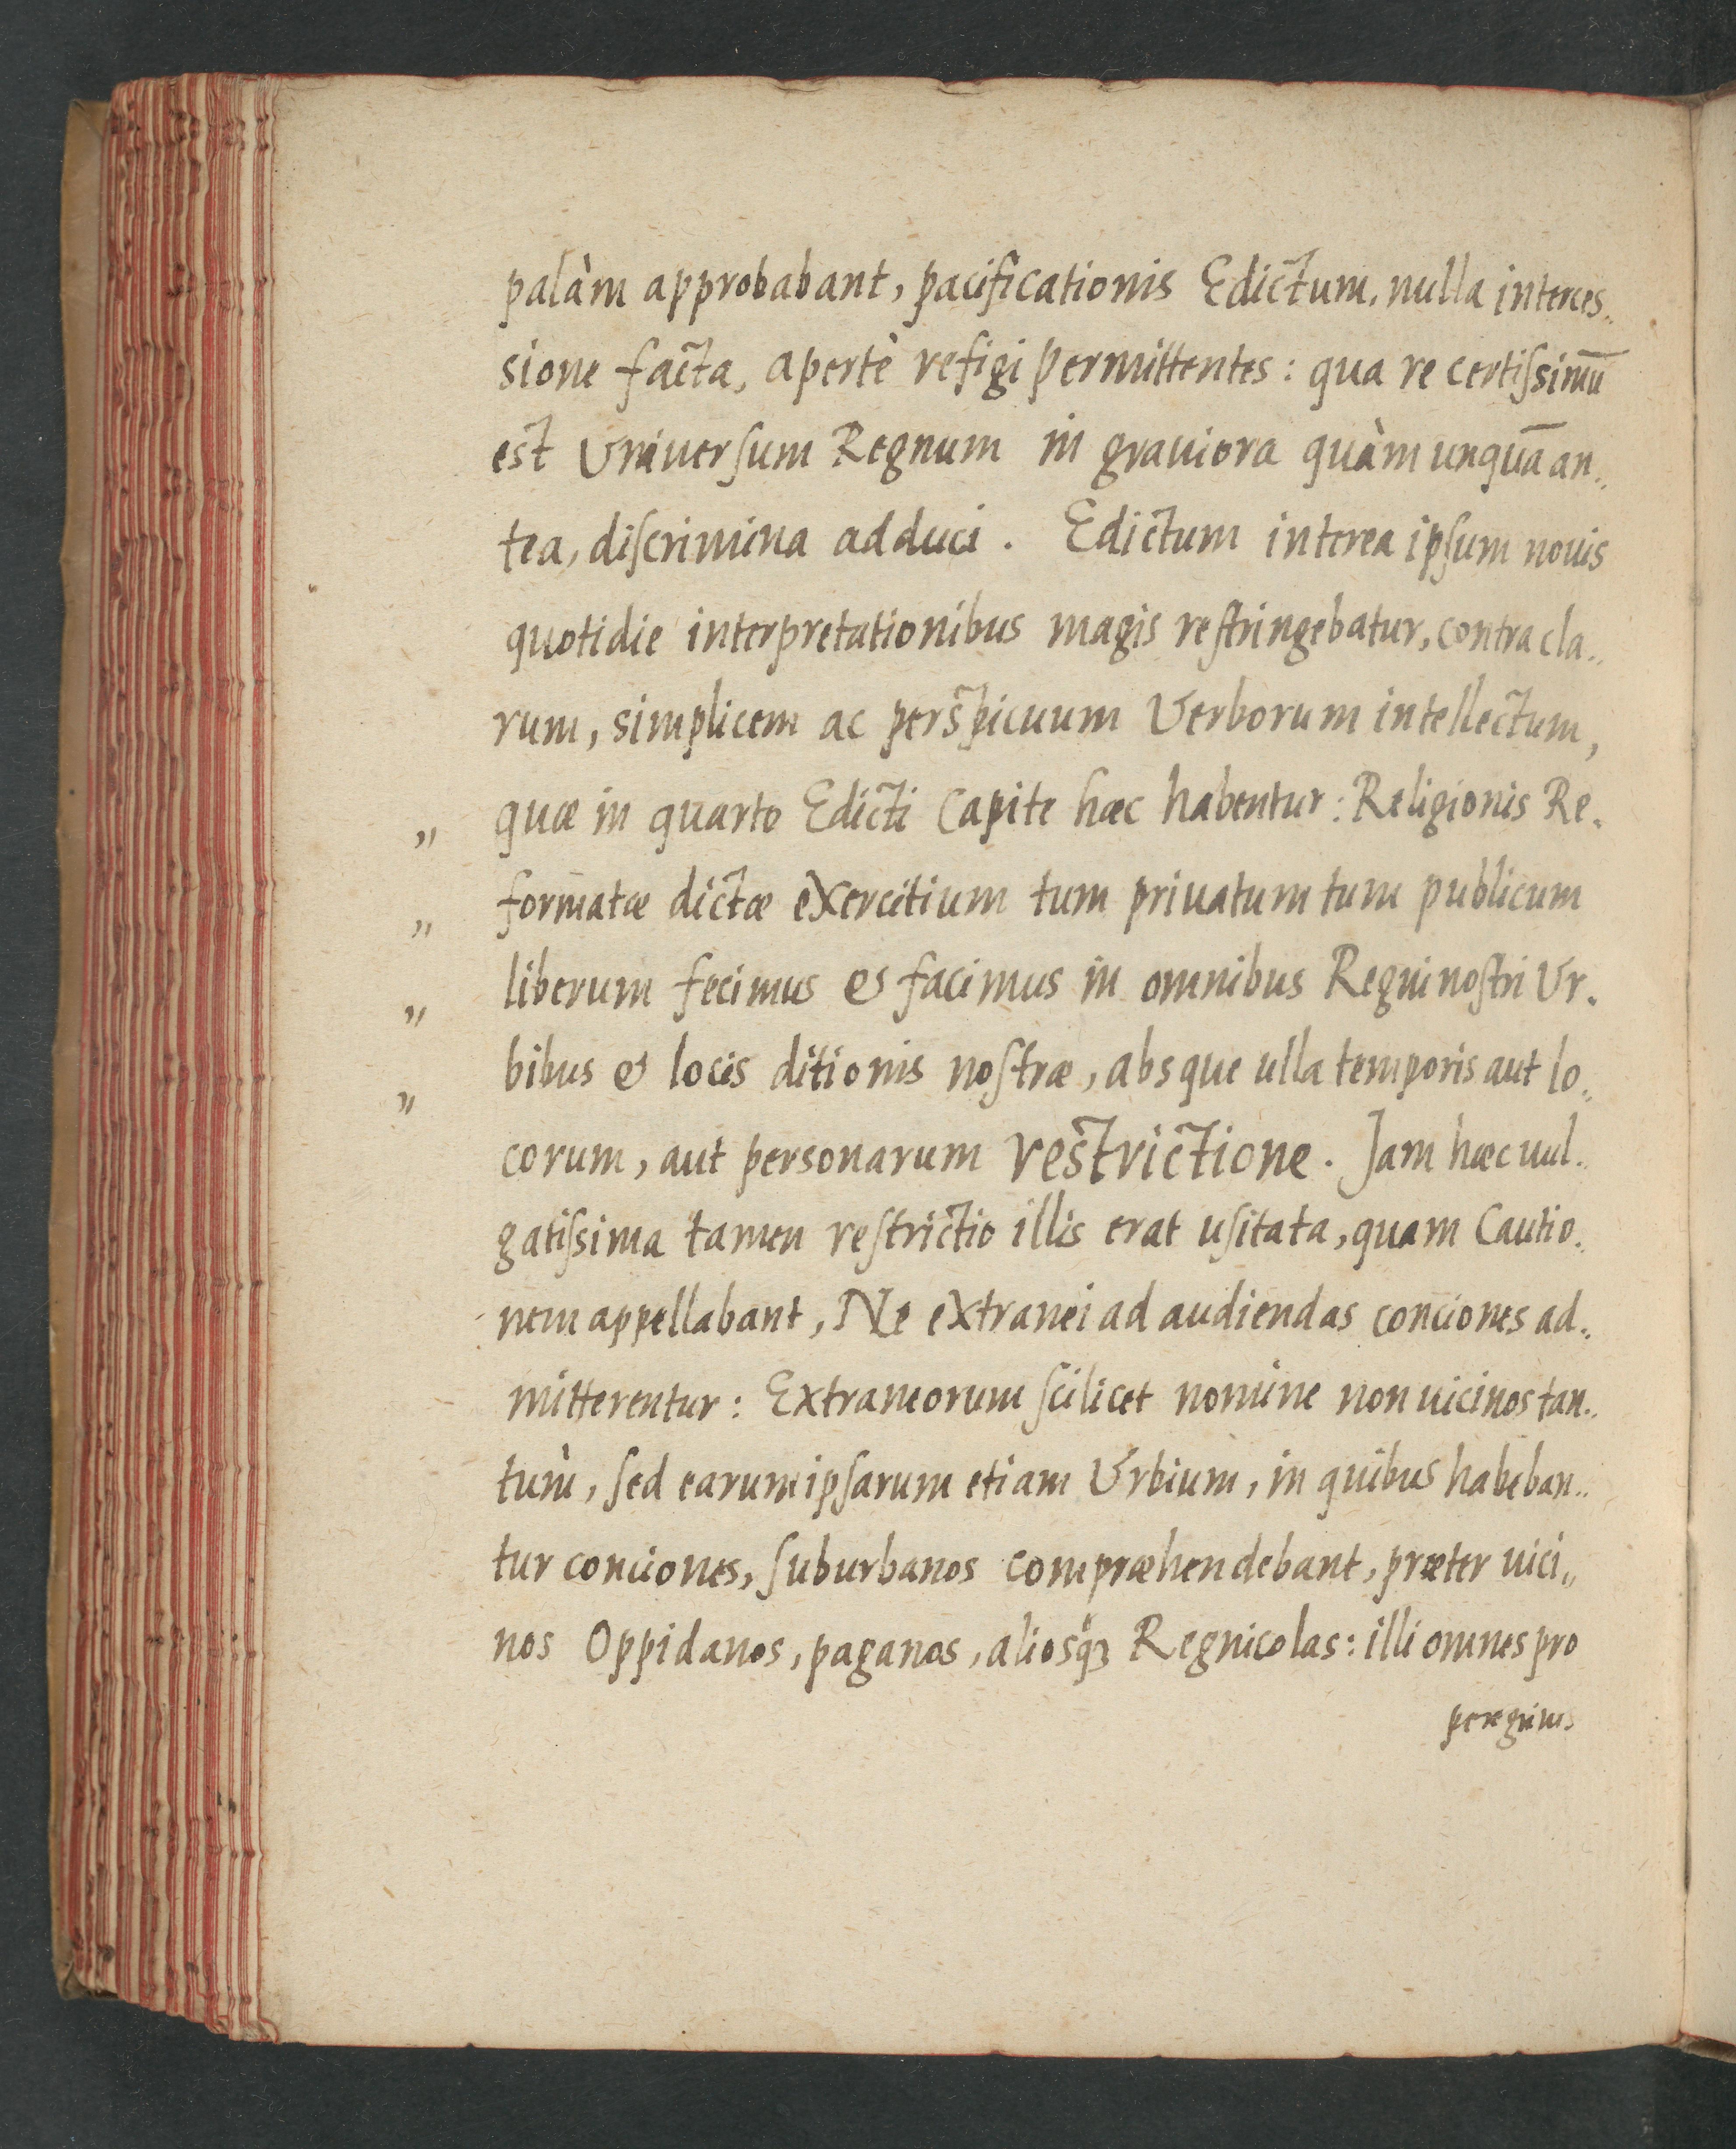 palàm approbabant, pacificationis Edictum, nulla interces„
sione facta, apertè refigi permittentes: qua re certiſsimū
est Vniuerſum Regnum in grauiora quàm unquā an„
tea, diſcrimina adduci. Edictum interea ipſum nouis
quotidie interpretationibus magis reſtringebatur, contra cla„
rum, simplicem ac perspicuum Verborum intellectum,
„ quæ in quarto Edicti Capite hæc habentur: Religionis Re„
„ formatæ dictæ exercitium tum priuatum tum publicum
„ liberum fecimus & facimus in omnibus Regni noſtri Vr„
„ bibus & locis ditionis noſtræ, absque ulla temporis aut lo„
corum, aut personarum restrictione. Jam hæc uul„
gatiſsima tamen reſtrictio illis erat uſitata, quam Cautio„
nem appellabant, Ne extranei ad audiendas conciones ad„
mitterentur: Extraneorum ſcilicet nomine non uicinos tan„
tùm, ſed earum ipſarum etiam Vrbium, in quibus habeban„
tur conciones, ſuburbanos compræhendebant, præter uici„
nos Oppidanos, paganos, aliosq́ꝫ Regnicolas: illi omnes pro
peregrinis